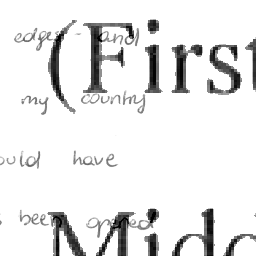 edges - and
(First
my country
would have
been opened
Midd